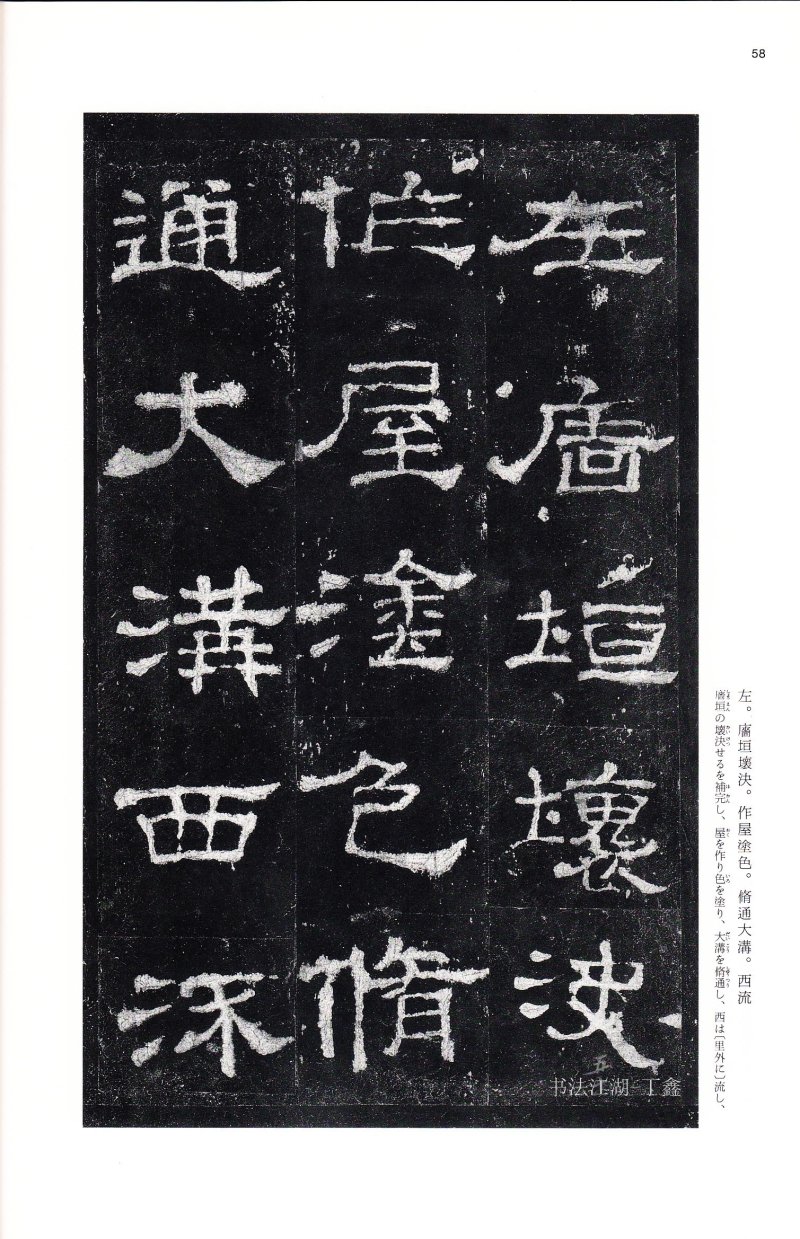 58
左廧垣壞決
作屋塗色脩
通大溝西流
五
左。廧垣壞決。作屋塗色。脩通大溝。西流
廧垣の壞決せるを補完し、屋を作り色を塗り、大溝を脩通し、西は〔里外に〕流し、
书法江湖-丁鑫